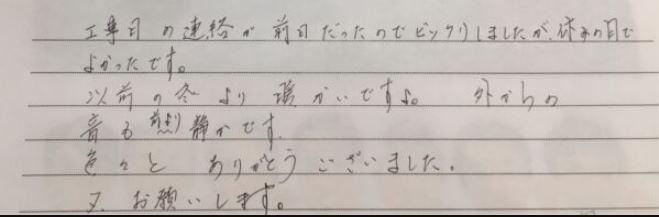 工事日の連絡が前日だったのでビックリしましたが、休みの日で
よかったです。
以前の冬より暖かいですよ。 外からの
音も前より静かです。
色々と ありがとうございました。
又、お願いします。